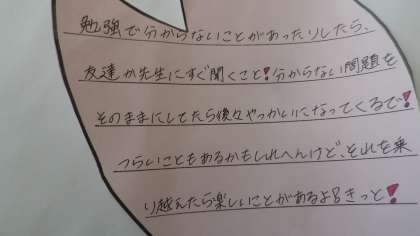 勉強で分からないことがあったりしたら、
友達か先生にすぐ聞くこと!分からない問題を
そのままにしてたら後々やっかいになってくるで!
つらいこともあるかもしれへんけど、それを乗
り越えたら楽しいことがあるよ!きっと!